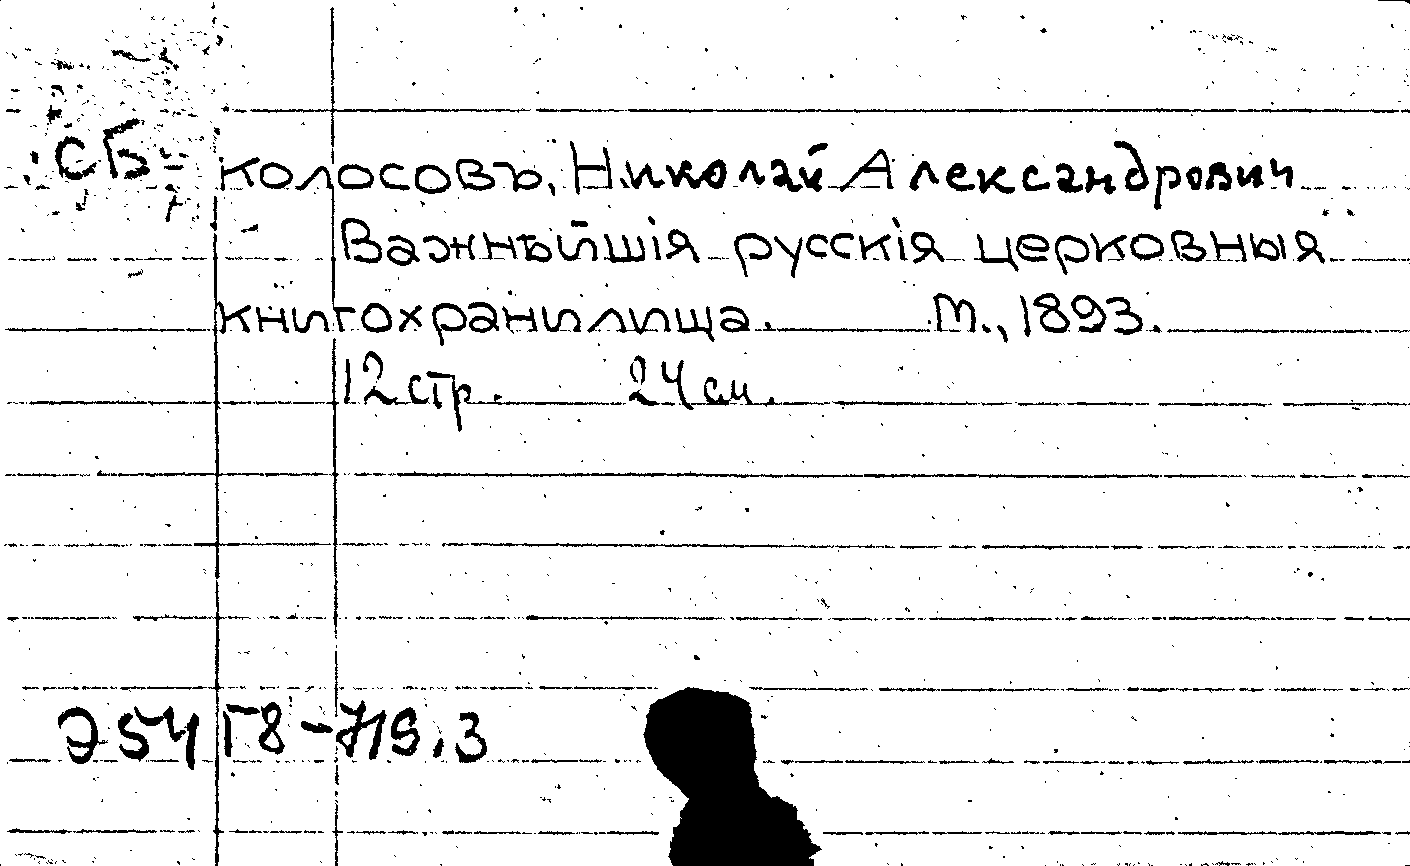 СБ- Колосовъ, Николай Александрович
Важнѣйшія русскія церковныя
книгохранилища. М., 1893.
12 стр. 24 см.
Э54 Г8-719.3